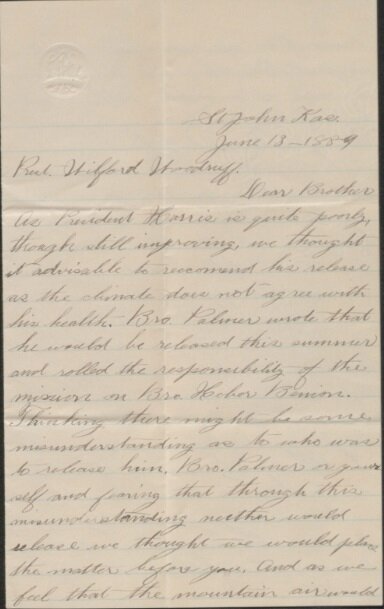 St John Kas.
June 13-1889
Prest. Wilford Woodruff.
Dear Brother
As President Harris is quite poorly,
though still improving, we thought
it advisable to recomend his release
as the climate does not agree with
his health. Bro. Palmer wrote that
he would be released this summer
and rolled the responsibility of the
mission on Bro. Heber Benion.
Thinking there might be some
misunderstanding as to who was
to release him, Bro. Palmer or your
self and fearing that through this
misunderstanding neither would
release we thought we would place
the matter before you. And as we
feel that the mountain air would